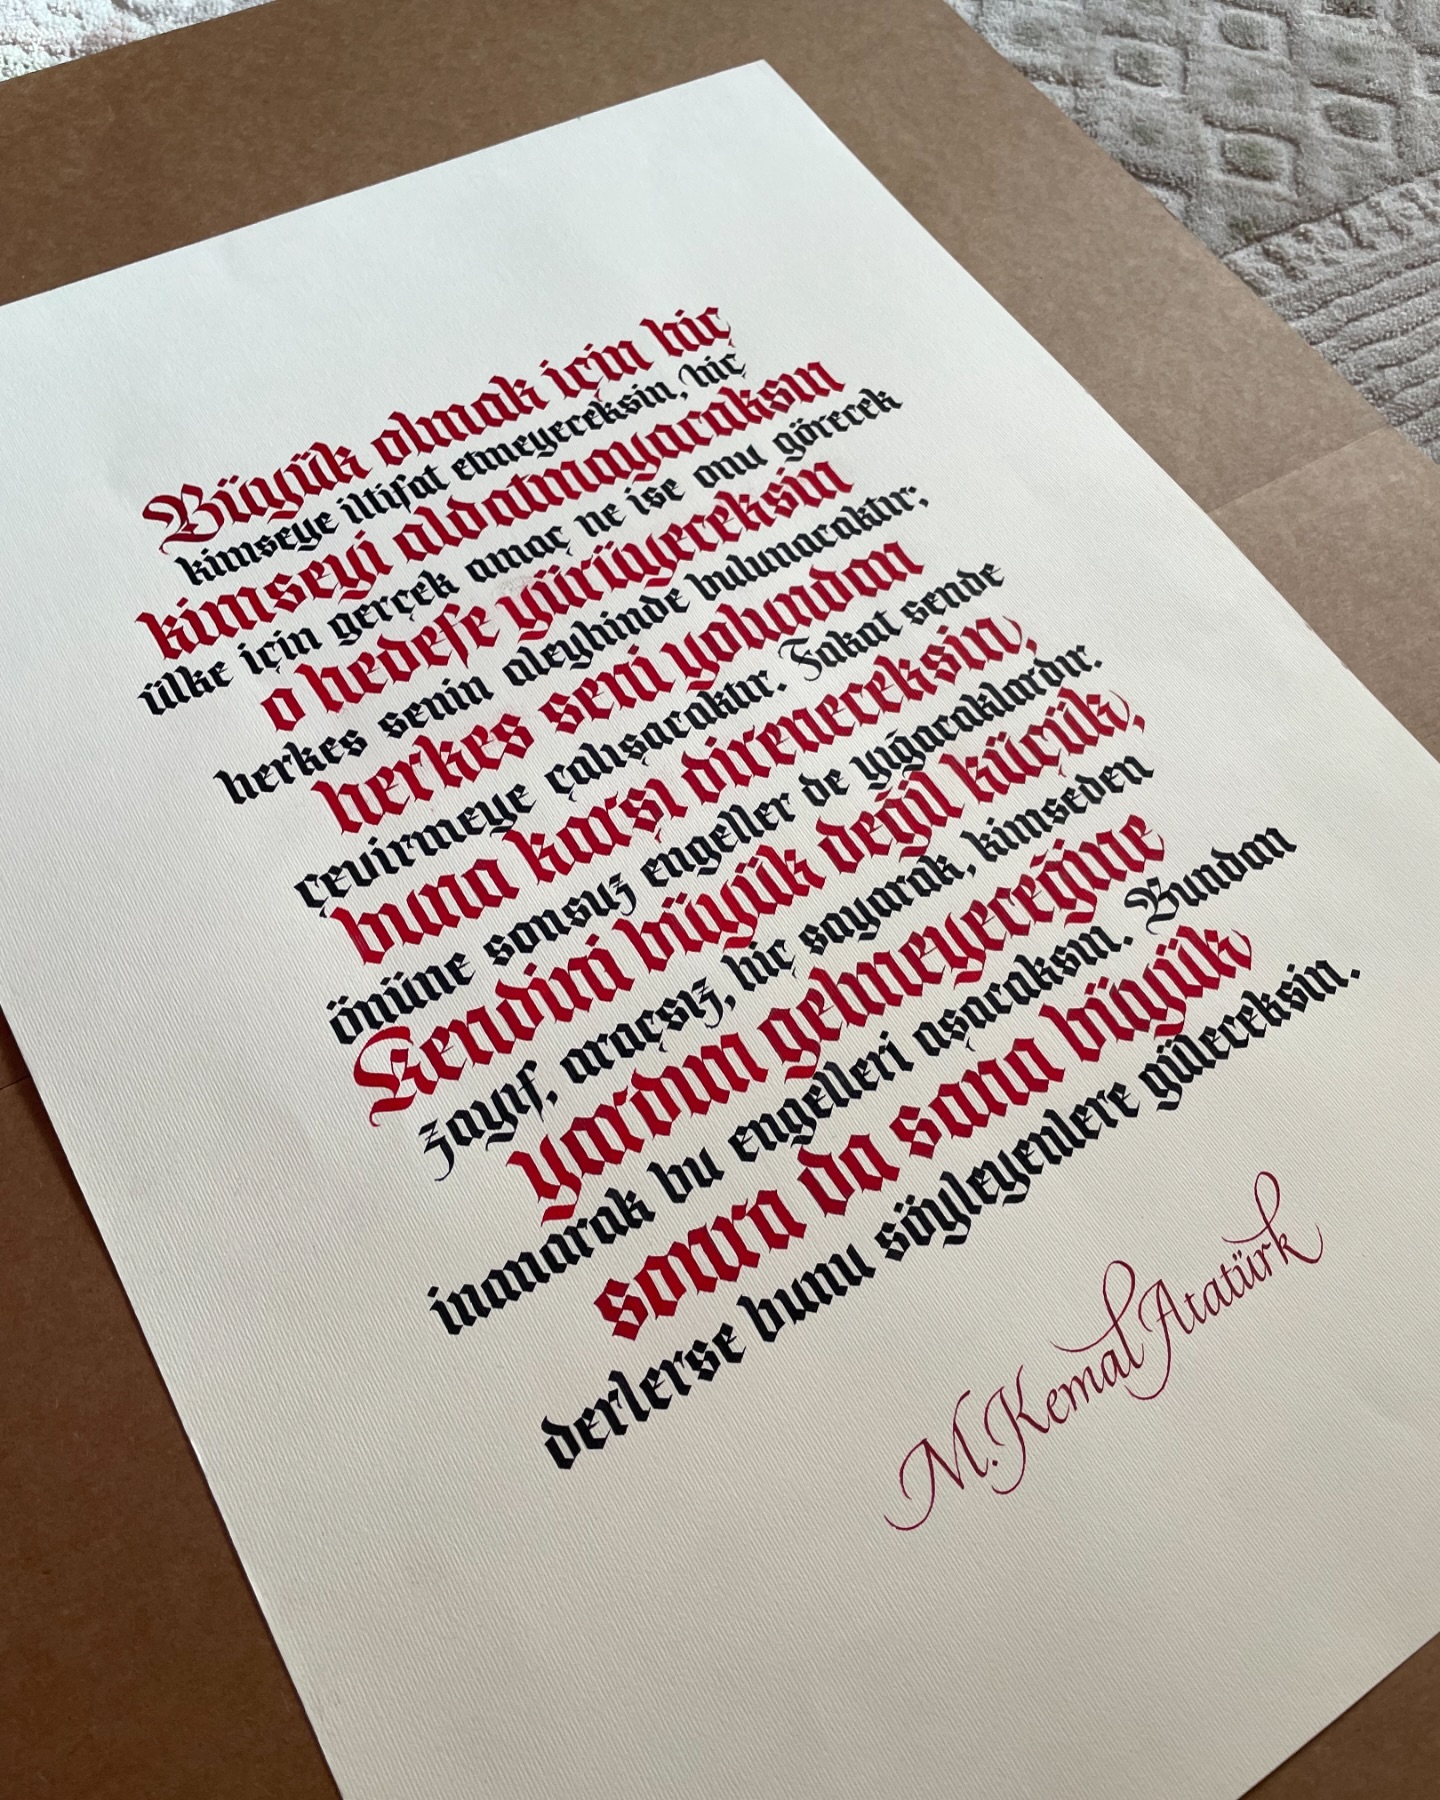 Büyük olmak için hiç
kimseye iltifat etmeyeceksin, hiç
kimseyi aldatmayacaksın
ülke için gerçek amaç ne ise onu görecek
o hedefe yürüyeceksin
herkes senin aleyhinde bulunacaktır;
herkes seni yolundan
çevirmeye çalışacaktır. Fakat sende
buna karşı direneceksin,
önüne sonsuz engeller de yığacaklardır.
Kendini büyük değil küçük,
zayıf, araçsız, hiç sayarak, kimseden
yardım gelmeyeceğine
inanarak bu engelleri aşacaksın. Bundan
sonra da sana büyük
derlerse bunu söyleyenlere güleceksin.
M. Kemal Atatürk